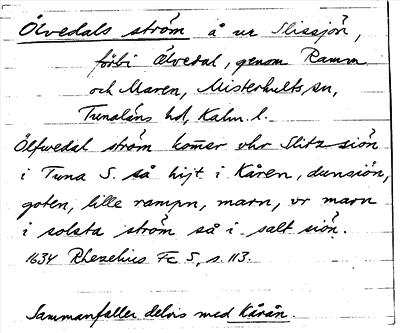 Ölvedals ström å ur Slissjön,
förbi Ölvedal, genom Ramm
och Maren, Misterhults sn,
Tunaläns hd, Kalm. l.
Ölfwedal ström kom̄er vhr Slitz siön
i Tuna S. så hijt i Kåren, dunsiön,
goten, lille rampn, marn, vr marn
i solsta ström så i salt siön.
1634 Rhezelius Fc 5, s. 113.
Sammanfaller delvis med Kårån.